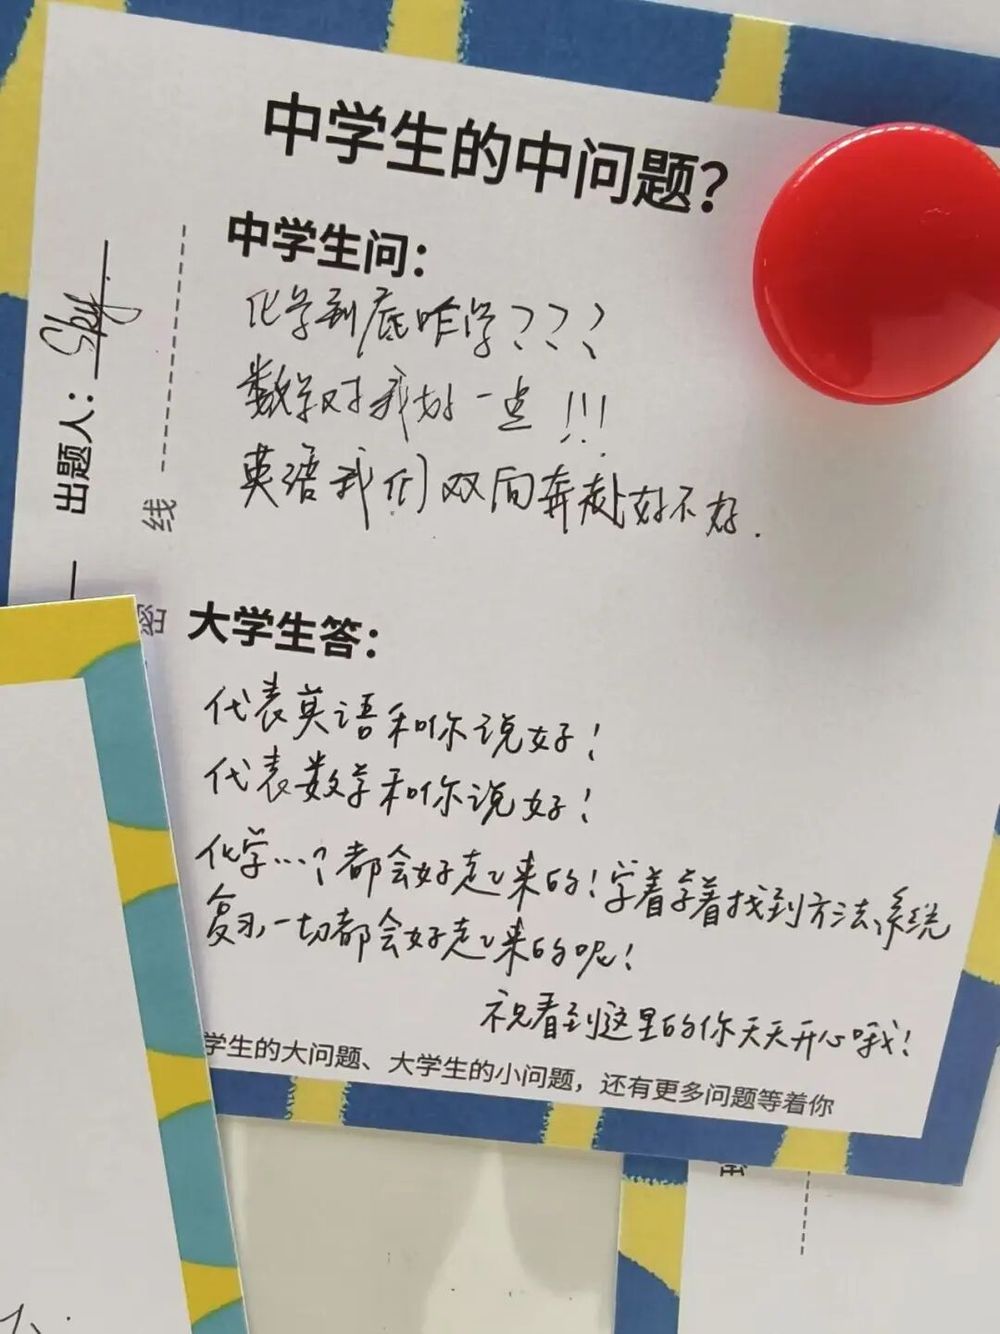 中学生的中问题?
中学生问:
化学到底咋学???
数学对我好一点!!!
英语我们双向奔赴好不好.
出题人: Sky.
线
密
大学生答:
代表英语和你说好!
代表数学和你说好!
化学…个都会好起来的!学着学着找到方法、系统
复习,一切都会好起来的呢!
祝看到这里的你天天开心哦!
学生的大问题、大学生的小问题，还有更多问题等着你